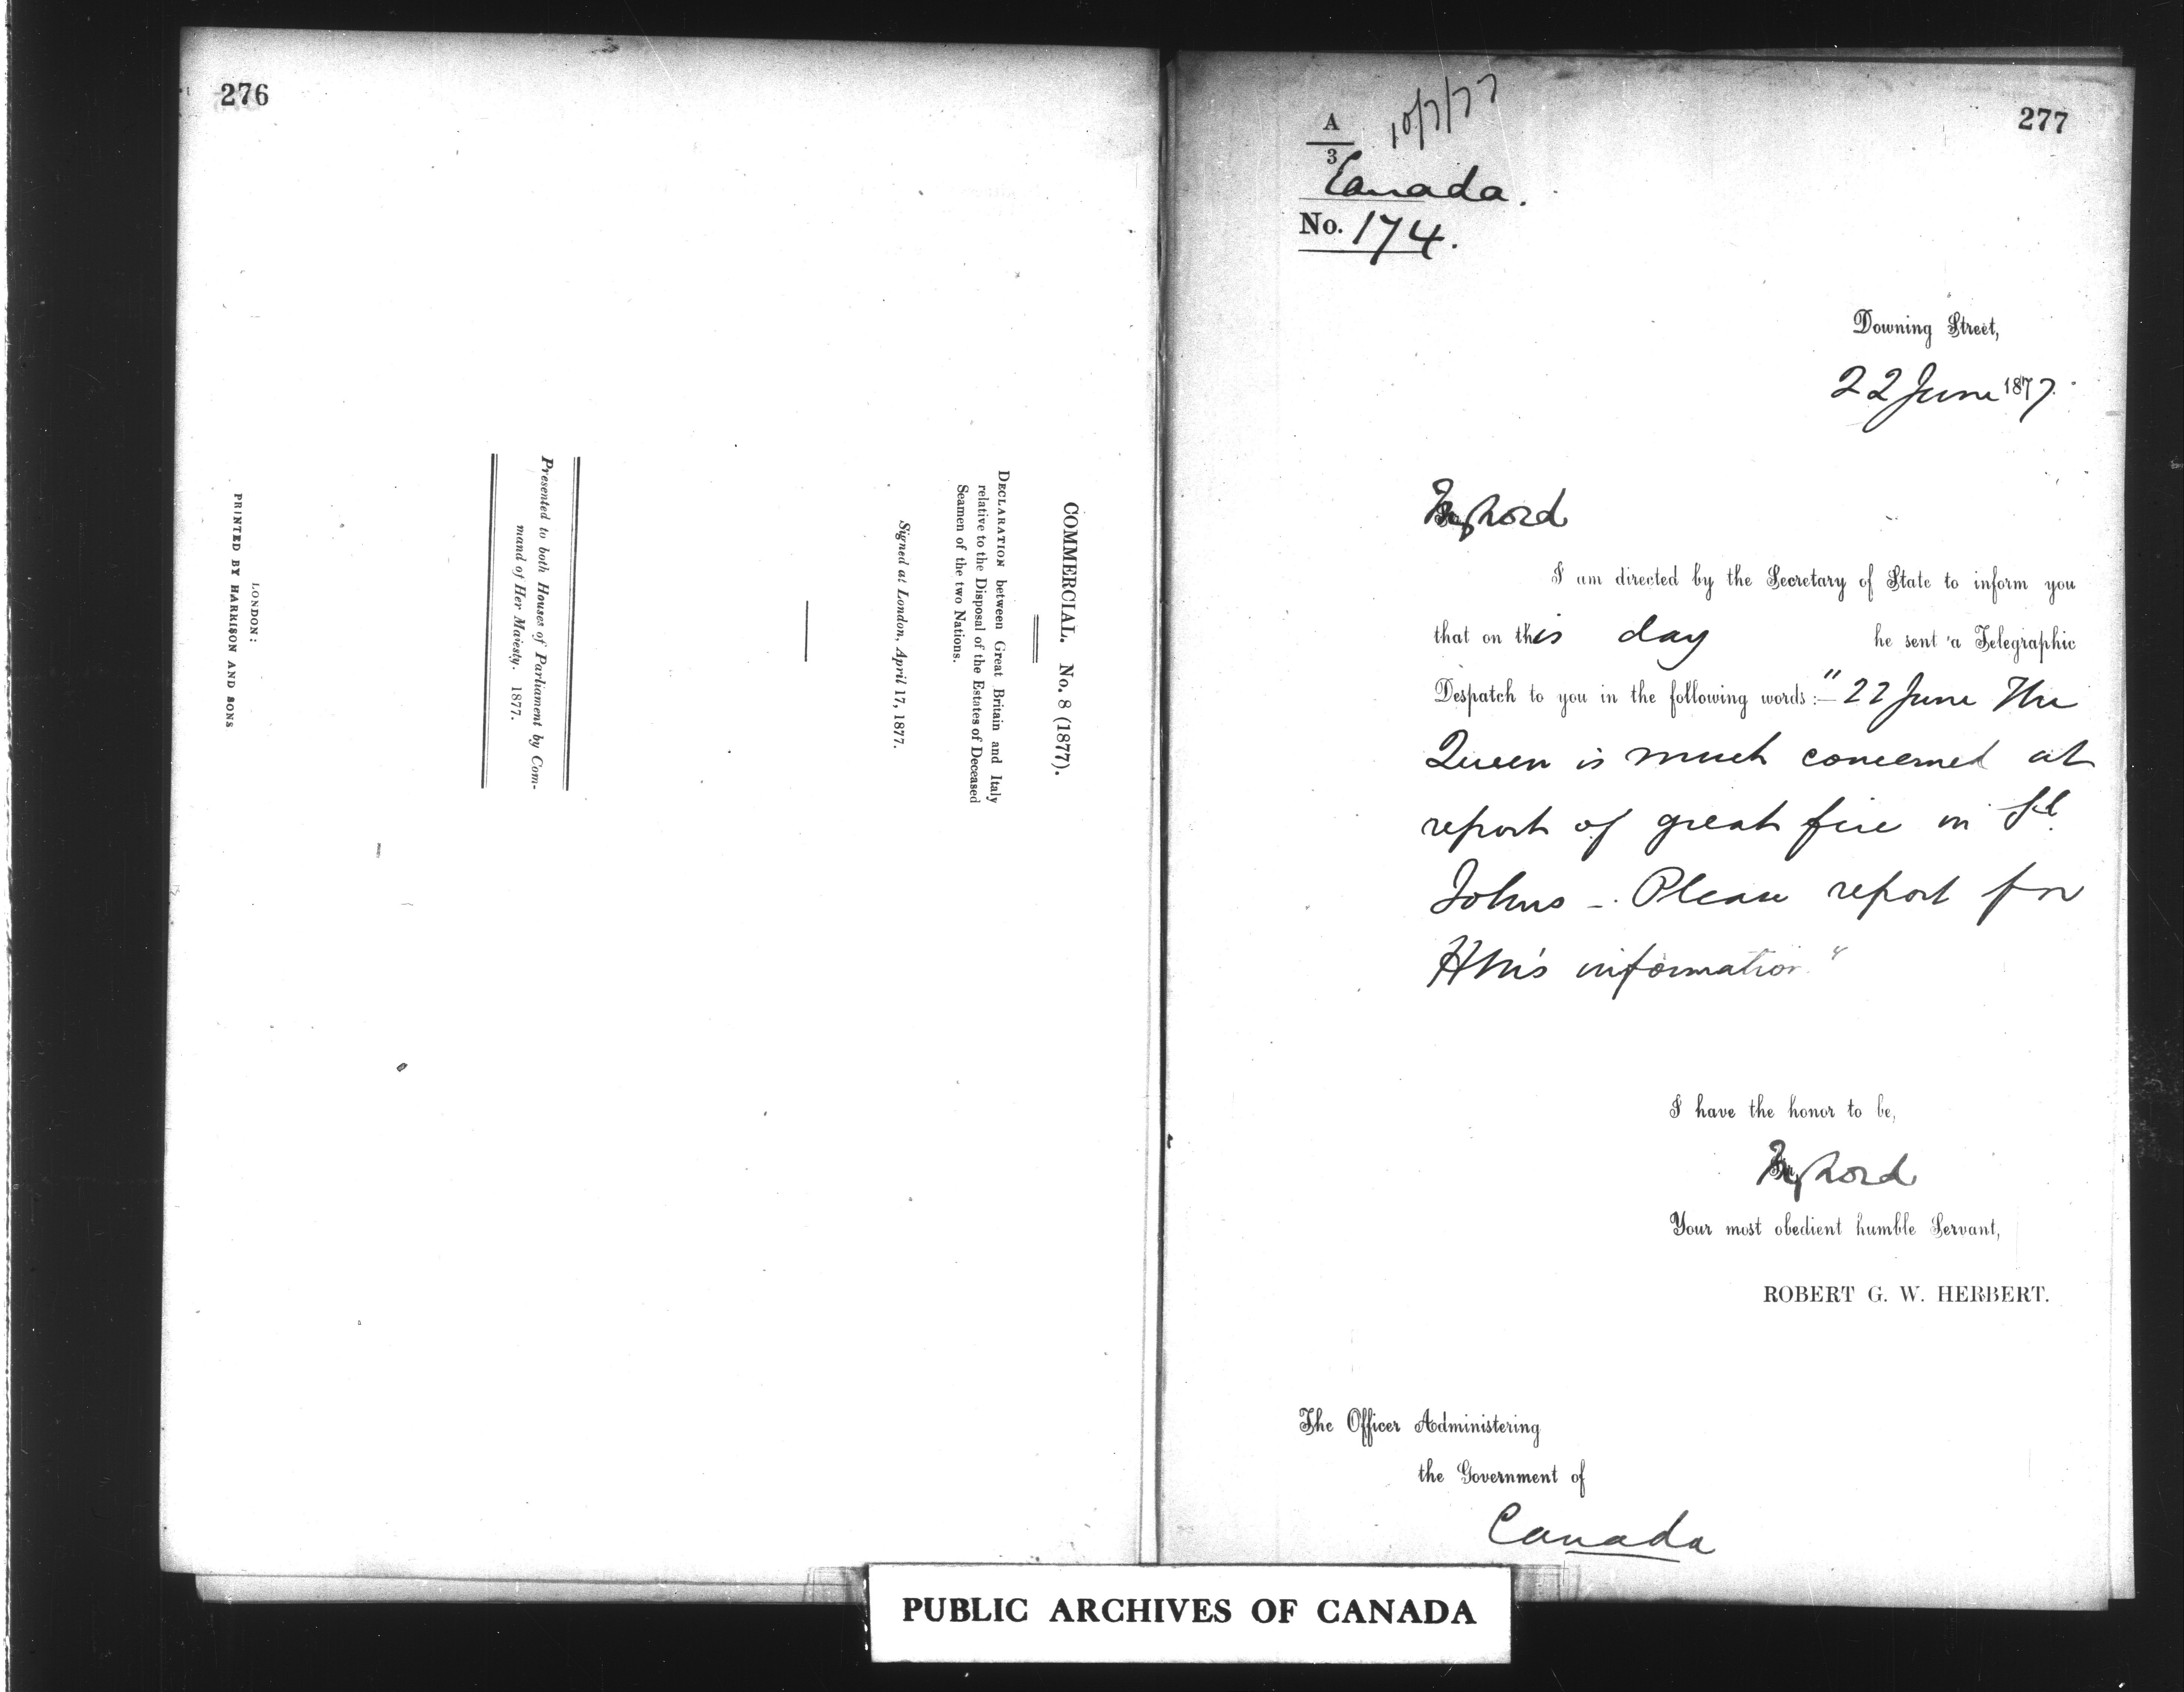 276
COMMERCIAL. No. 8 (1877).
DECLARATION between Great Britain and Italy
relative to the Disposal of the Estates of Deceased
Seamen of the two Nations.
Signed at London, April 17, 1877.
Presented to both Houses of Parliament by Com-
mand of Her Majesty. 1877.
LONDON:
PRINTED BY HARRISON AND SONS
277
A
3
10/7/77
Canada.
No. 174.
Downing Street,
22 June 1877.
My Lord
I am directed by the Secretary of State to inform you
that on this day he sent a Telegraphic
Despatch to you in the following words:— "22 June The
Queen is much concerned at
report of great fire in St.
Johns —. Please report for
HM's information"
I have the honor to be,
My Lord
Your most obedient humble Servant,
ROBERT G. W. HERBERT.
The Officer Administering
the Government of
Canada
PUBLIC ARCHIVES OF CANADA